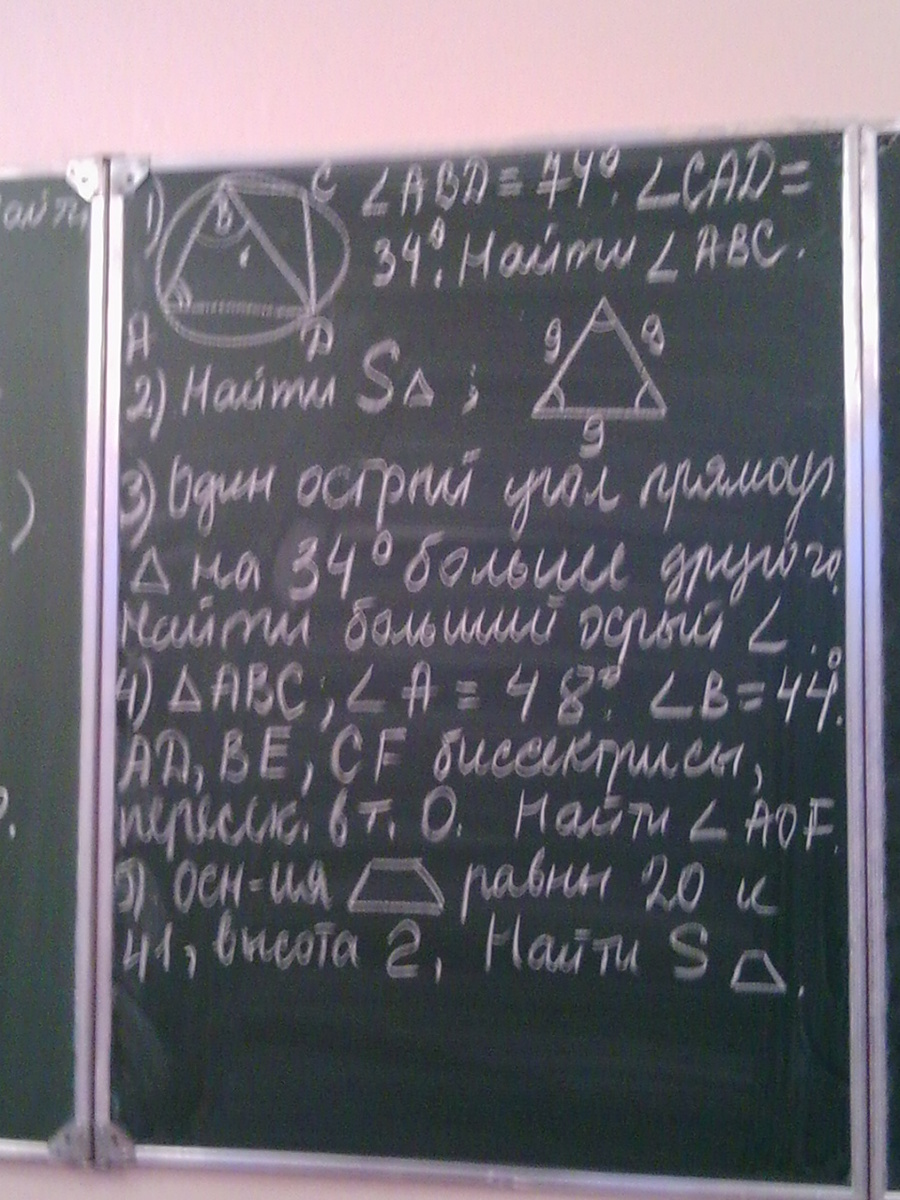 айти
1) B C ∠ABD = 74°. ∠CAD =
34°. Найти ∠ABC.
A D
2) Найти S△ ; 9 9
9
3) Один острый угол прямоуг
△ на 34° больше другого.
Найти больший осрый ∠.
4) △ABC, ∠A = 48° ∠B = 44°.
AD, BE, CF биссектрисы,
пересек. в т. O. Найти ∠AOF.
5) Осн-ия равны 20 и
41, высота 2, Найти S